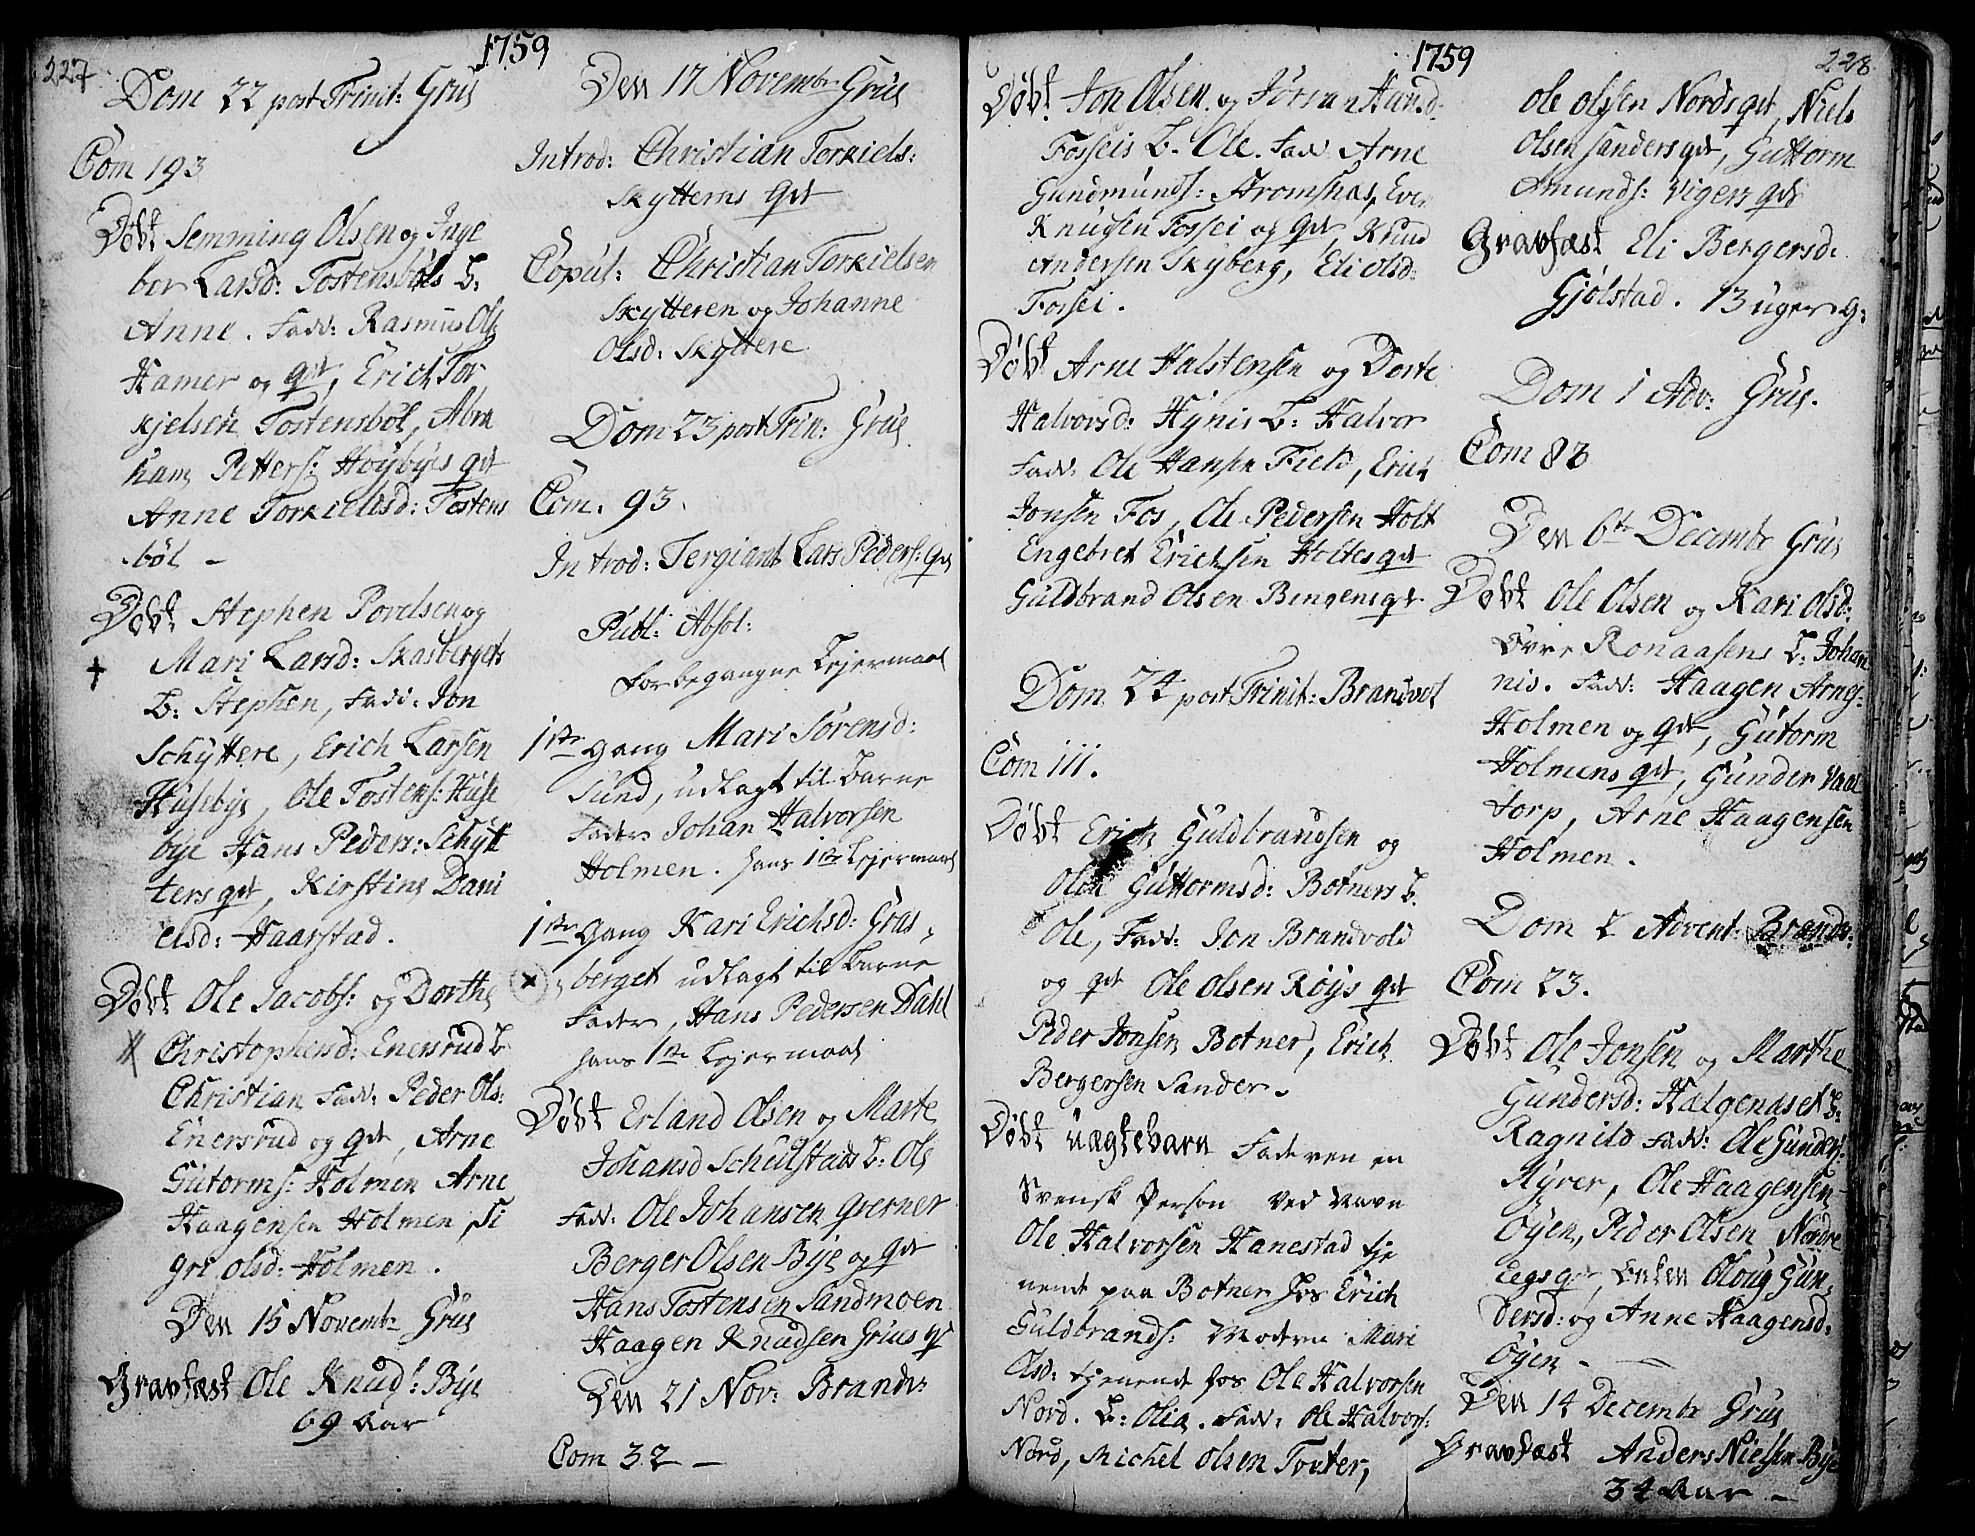 227
1759
Dom 22 post Trinit: Grue
Com 193
Döbt Semming Olsen og Inge
bor Larsd: Tostensböls B:
Anne. Fadd: Rasmus Ols
Kamer og qvt, Erich Tor
kjelsen Tostensböl, Abra
ham Petters: Höybyes qvt
Anne Torkieldsd: Tostens
böl -
Döbt Stephen Povelsen og
Mari Larsd: Skasbergets
B: Stephen, Fadd: Jon
Schÿttere, Erich Larsen
Husebye, Ole Tostens: Huse
bye Hans Peders: Schÿt
ters qvt, Kirstine Dani
elsd: Haarstad.
Döbt Ole Jacobs: og Dorthe
Christophersd: Enersrud B
Christian Fadd: Peder Ols:
Enersrud og qvt, Arne
Gutorms: Holmen Arne
Haagensen Holmen, Si
gri Olsd: Holmen.
Den 15 Novembr Grue
Gravfæst Ole Knuds: Bye
69 Aar
Den 17 Novembr Grue
Introd: Christian Torkiels:
Skytterns qvt
Copul: Christian Torkielsen
Skytteren og Johanne
Olsd: Skyttere
Dom 23 post Trin: Grue
Com. 93.
Introd: Sergiant Lars Peders: qvt
Publ: Absol:
for begangne Lejermaal
1ste Gang Mari Sörensd:
Sund, udlagt til Barne
Fader Johan Halvorsen
Holmen. hans 1ste Lejermaal
1ste Gang Kari Erichsd: Gras
berget udlagt til Barne
Fader, Hans Pedersen Dahl
hans 1ste Lejermaal
Döbt Erland Olsen og Marte
Johansd Schulstads B: Ole
Fadd: Ole Johansen Grerner
Berger Olsen Bye og qvt
Hans Tostensen Sandmoen
Haagen Knudsen Grues qvt
Den 21 Nov: Brandv:
Com 32 -
1759
228
Döbt Jon Olsen og Jöran Hansd:
Fosseis B. Ole. Fad Arne
Gundmunds: Stromsnas, Eve
Knudsen Fossei og qvt, Knud
Andersen Skÿberg, Eli Olsd:
Forsei.
Döbt Arne Halstensen og Dorte
Halvorsd: Hÿnis B: Halvor
Fadd: Ole Hansen Field, Erich
Jonsen Fos, Ole Pedersen Holt
Engebret Erichsen Holtes qvt
Guldbrand Olsen Bingens qvt
Dom 24 post Trinit: Brandvol
Com 111.
Döbt Erich Guldbrandsen og
Olou Guttormsd: Botners B.
Ole, Fadd: Jon Brandvold
og qvt Ole Olsen Röÿs qvt
Peder Jonsen Botner, Erich
Bergersen Sander.
Döbt Uægtebarn Faderen en
Svensk Person ved Navn
Ole Halvorsen Hanestad tje
nende paa Botner hos Erich
Guldbrands: Moderen Mari
Olsd: tjenende hos Ole Halvorsen
Nord. B: Olia. Fadd: Ole Halvors:
Nord, Michel Olsen Tvoter,
Ole Olssen Nords qvt, Niels
Olsen Sanders qvt, Guttorm
Amunds: Vigers qvt
Gravfæst Eli Bergersd:
Gjölstad. 13 uger g:
Dom 1 Adv: Grue.
Com 83
Den 6te Decembr Grue
Döbt Ole Olsen og Kari Olsd:
Övre Ronaasens B: Johan
nis. Fadd: Haagen Arnes:
Holmen og qvt, Gutorm
Holmens qvt, Gunder Vaal
torp, Arne Haagensen
Holmen.
Dom 2 Advent: Brandv:
Com 23.
Döbt Ole Jonsen og Marthe
Gundersd: Hælgenaset B:
Ragnild Fadd: Ole Gunders:
Kÿrer, Ole Haagensen
Öyen, Peder Olsen Nordre
Eegs qvt, Enken Oloug Gun
dersd: og Anne Haagensd:
Öyen -
Den 14 Decembr Grue
Gravfæst Anders Nielsen Bye
34 Aar -